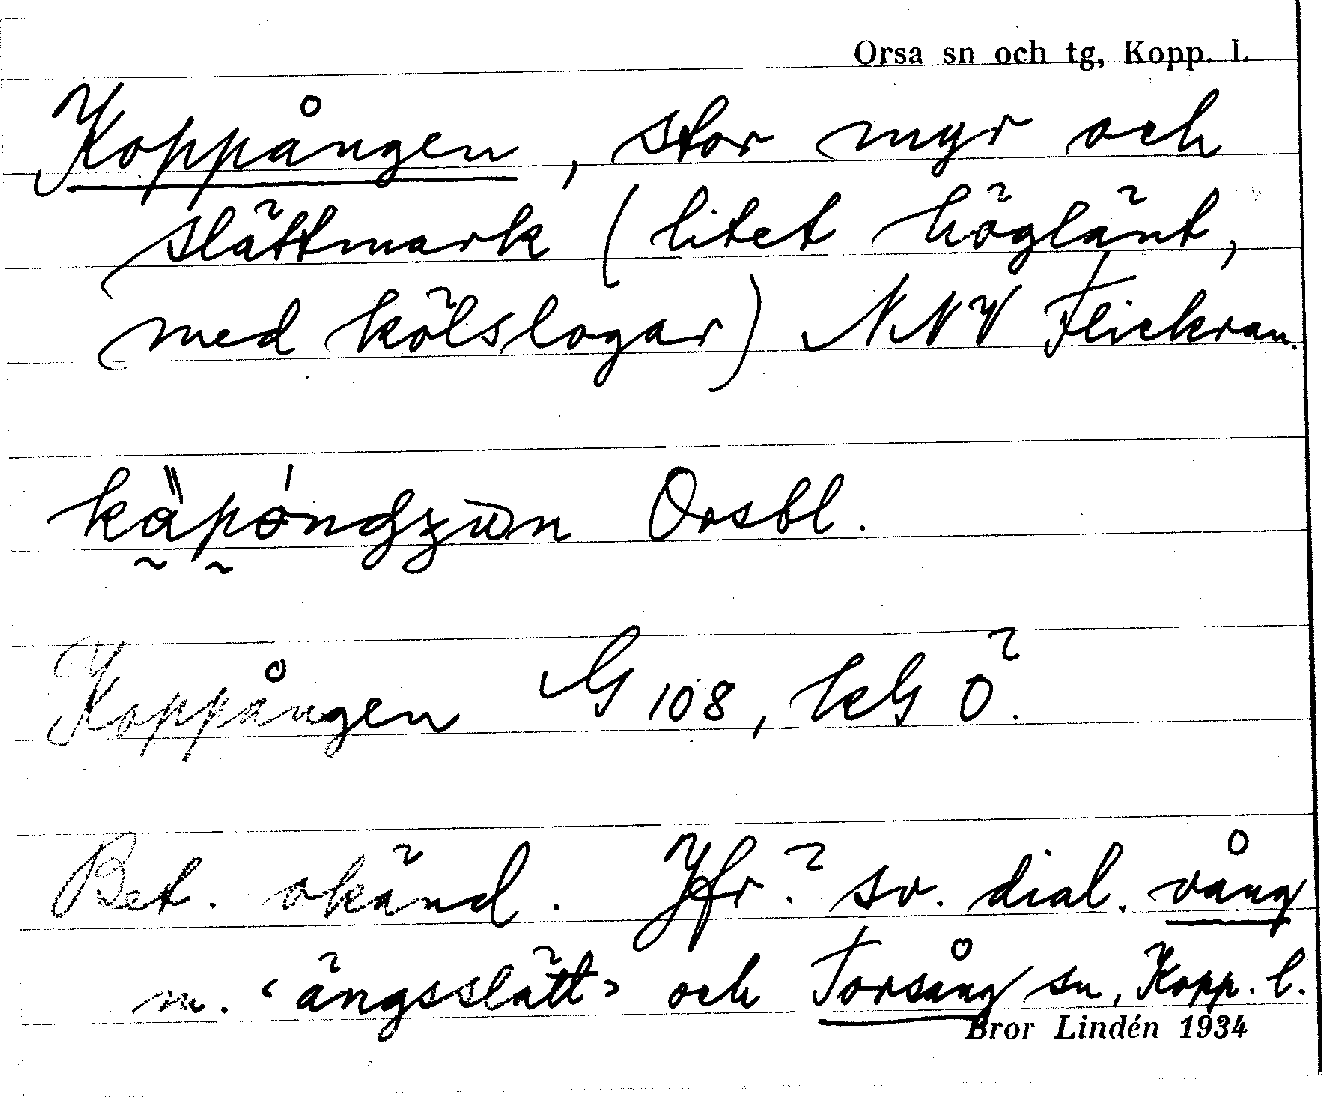 Orsa sn och tg, Kopp. l.
Koppången, stor myr och
slättmark (litet höglänt,
med kölslogar) NNV Flickran.
Orsbl.
Koppången G 108, kG Ö.
Bet. okänd. Jfr? sv. dial. vång
m. ‹ängsslätt› och Torsång sn, Kopp. l.
Bror Lindén 1934